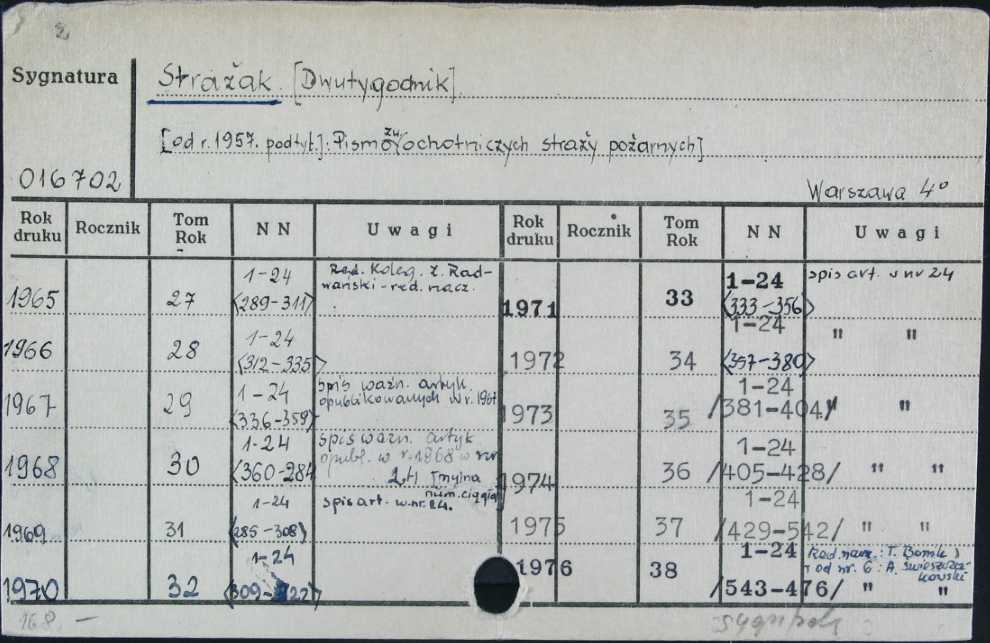 Sygnatura
Strażak [Dwutygodnik]
[od r. 1957. podtyt.]: Pismo zw ochotniczych straży pożarnych]
016702
Warszawa 4°
Rok druku Rocznik Tom Rok NN Uwagi Rok druku Rocznik Tom Rok NN Uwagi
1965 27 1-24 <289-311> Red. Koleg. Z. Radwański - red. nacz.
1966 28 1-24 <312-335>
1967 29 1-24 <336-359> spis ważn. artyk. opublikowanych w r. 1967
1968 30 1-24 <360-284 spis ważn. artyk opubl. w r. 1868 w nr 24 [mylna num. ciągła]
1969 31 1-24 <285-308> spis art. w nr. 24.
1970 32 1-24
1971 33 1-24 <333-356> spis art. w nr 24
1972 34 1-24 <357-380> " "
1973 35 1-24 /381-404/ "
1974 36 1-24 /405-428/ " "
1975 37 1-24 /429-542/ " "
1976 38 1-24 /543-476/ Red. nacz.: T. od nr. 6: A. " "
168. -